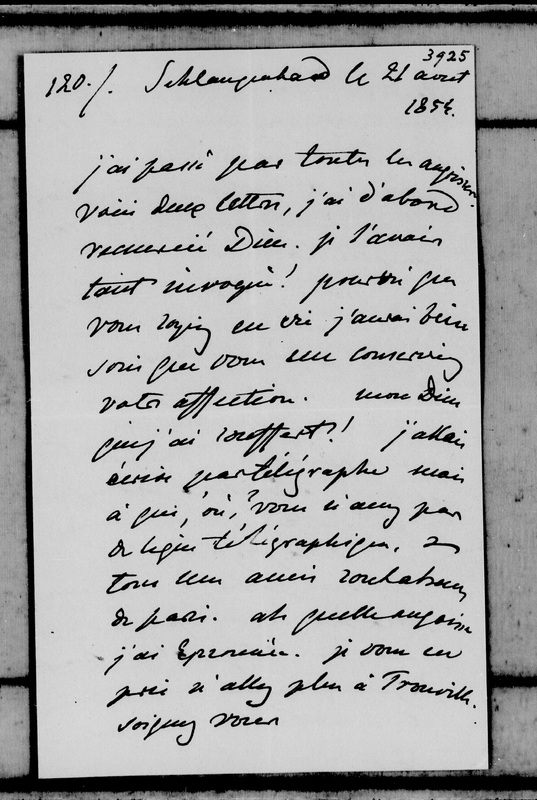 3925
120./. Schlangenbad le 21 aout
1854.
j'ai passé par toutes les angoisses.
voici deux lettres, j'ai d'abord
remercié Dieu. je l'avais
tant invoqué! pourvu que
vous soyiez en vie j'aurai bien
soin que vous me conserviez
votre affection. mon Dieu
que j'ai souffert! j'allais
écrire par télégraphe mais
à qui, où, vous n'avez pas
de ligne télégraphique, &
tous mes amis sont absens
de paris. ah quelle angoisse
j'ai éprouvée. je vous en
prie n'allez plus à Trouville.
soignez vous